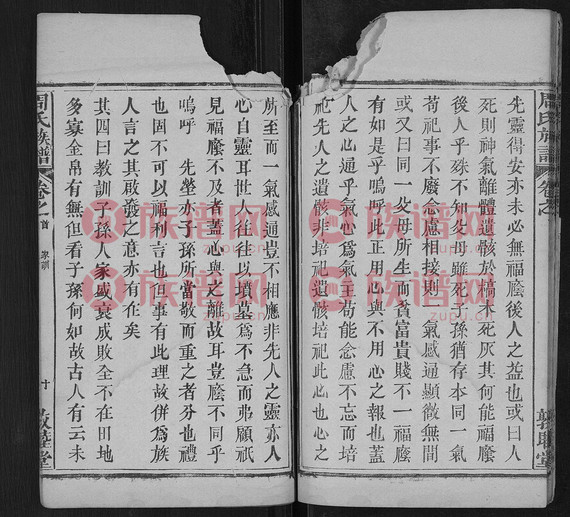 先靈得安亦未必無福廕後人之益也或曰人
死則神氣離體遺骸於槁木死灰其何能福廕
後人乎殊不知父母雖死子孫猶存本同一氣
苟祀事不廢念慮相接則 氣感通顯微無間
或又曰同一父母所生而貧富貴賤不一福廕
有如是乎嗚呼此正用心與不用心之報也蓋
人之心通乎氣心爲氣主苟能念慮不忘而培
祀先人之遺骸非培祀遺骸培祀此心也心之
所至而一氣感通豈不相應非先人之靈亦人
心自靈耳世人往往以墳墓爲不急而弗顧祇
見福廕不及者蓋心與之離故耳豈廕不同乎
嗚呼 先塋亦子孫所當敬而重之者分也禮
也固不可以福利言也但事有此理故併爲族
人言之其啟發之意亦有在矣
其四曰教訓子孫人家盛衰成敗全不在田地
多寡金帛有無但看子孫何如故古人有云未
周氏族譜
卷之首
家訓
十
敦睦堂
周氏族譜
卷之
敦睦堂
族谱网
zupu.cn
族谱网
zupu.cn
族谱网
zupu.cn
族谱网
zupu.cn